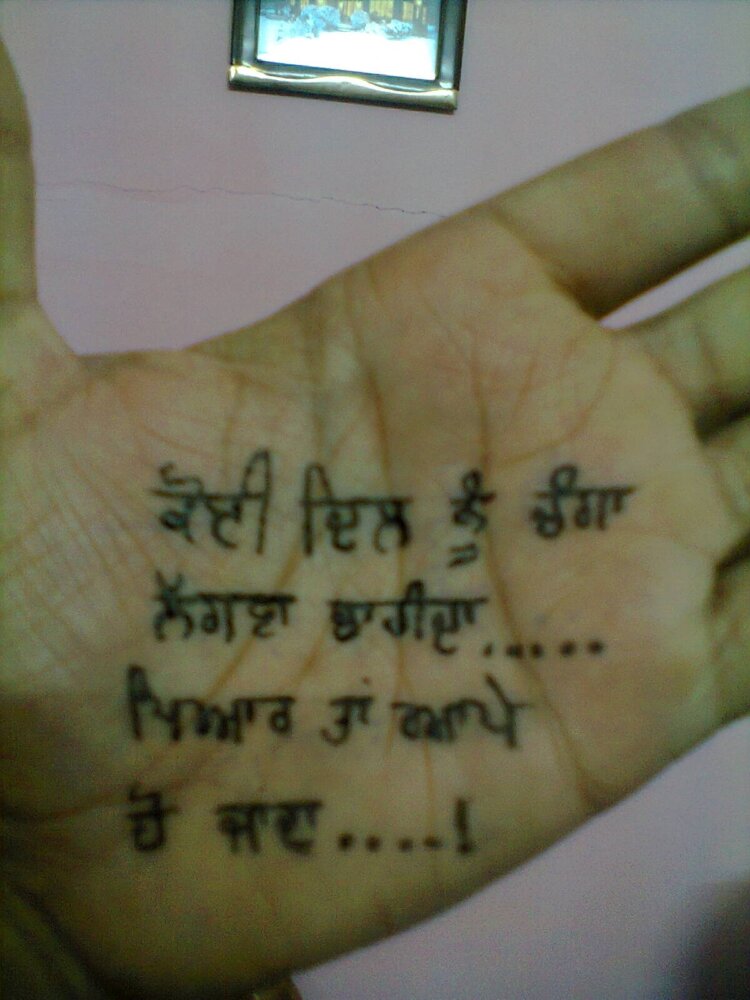 ਕੋਈ ਦਿਲ ਨੂੰ ਚੰਗਾ
ਲੱਗਣਾ ਚਾਹੀਦਾ.....
ਪਿਆਰ ਤਾਂ ਆਪੇ
ਹੋ ਜਾਂਦਾ....!